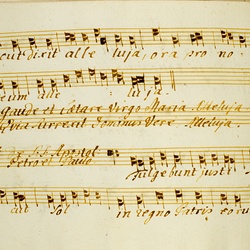 cut dixit alle luja, ora pro no
eum alle luja.
gaude et lætare Virgo Maria Alleluja
surrexit Dominus Vere Alleluja.
S.S. Apostol
Petro et Paulo
fulgebunt justi
sicut sol in regno Patris eoru